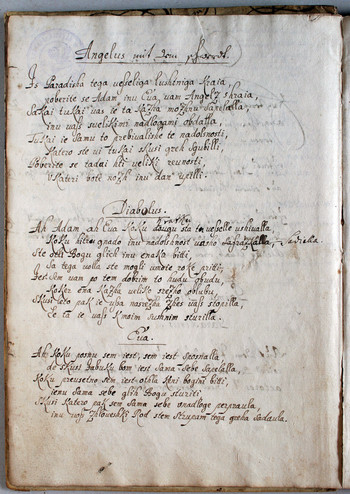 Angelus mit dem schwerdt.
Is Paradisha tega veseliga lushtniga kraia,
poberite se Adam inu Eva, vam Angelz shraia,
Sakai tukai vas ie ta kazha mozhnu Sapelalla,
inu vass sveliskimi nadlogami obdalla,
Tukai ie Samu to prebivalishe te nadolshnosti,
Katero ste vi tukai skusi greh Sgubilli,
Poberite se tadai hti veliki revnosti,
Kateri bote nozh inu dan vpilli.
Diabolus.
Ah Adam ah Eva Koku dougu sta to veselle vshivalla,
kratku
Koku hitru gnado inu nadolshnost sapravlalla,
Ste otli Bogu glih inu enaku biti,
Sa tega volla ste mogli vmoie roke priti,
Jest Sem vam po tem dobrim to hudu
Koker ena Kazha veliko srezho oblubu
Skusi to pak ie vba nasrezha zhes vass storilla
Ke ta ie vass kmoim sushnim sturilla.
Eva.
Ah Koku posnu sem iest, sem iest Sposnalla,
de skusi Jabuku bom iest Sama Sebe Sapelalla,
Koku preusetno sem iest otela Eni bogini biti,
ienu Sama sebe glih Bogu sturiti
Skusi Katero pak sem Sama sebe vnadloge perpravla,
inu vus zhloveshki Rod stem strupam tega greha Sadavla.